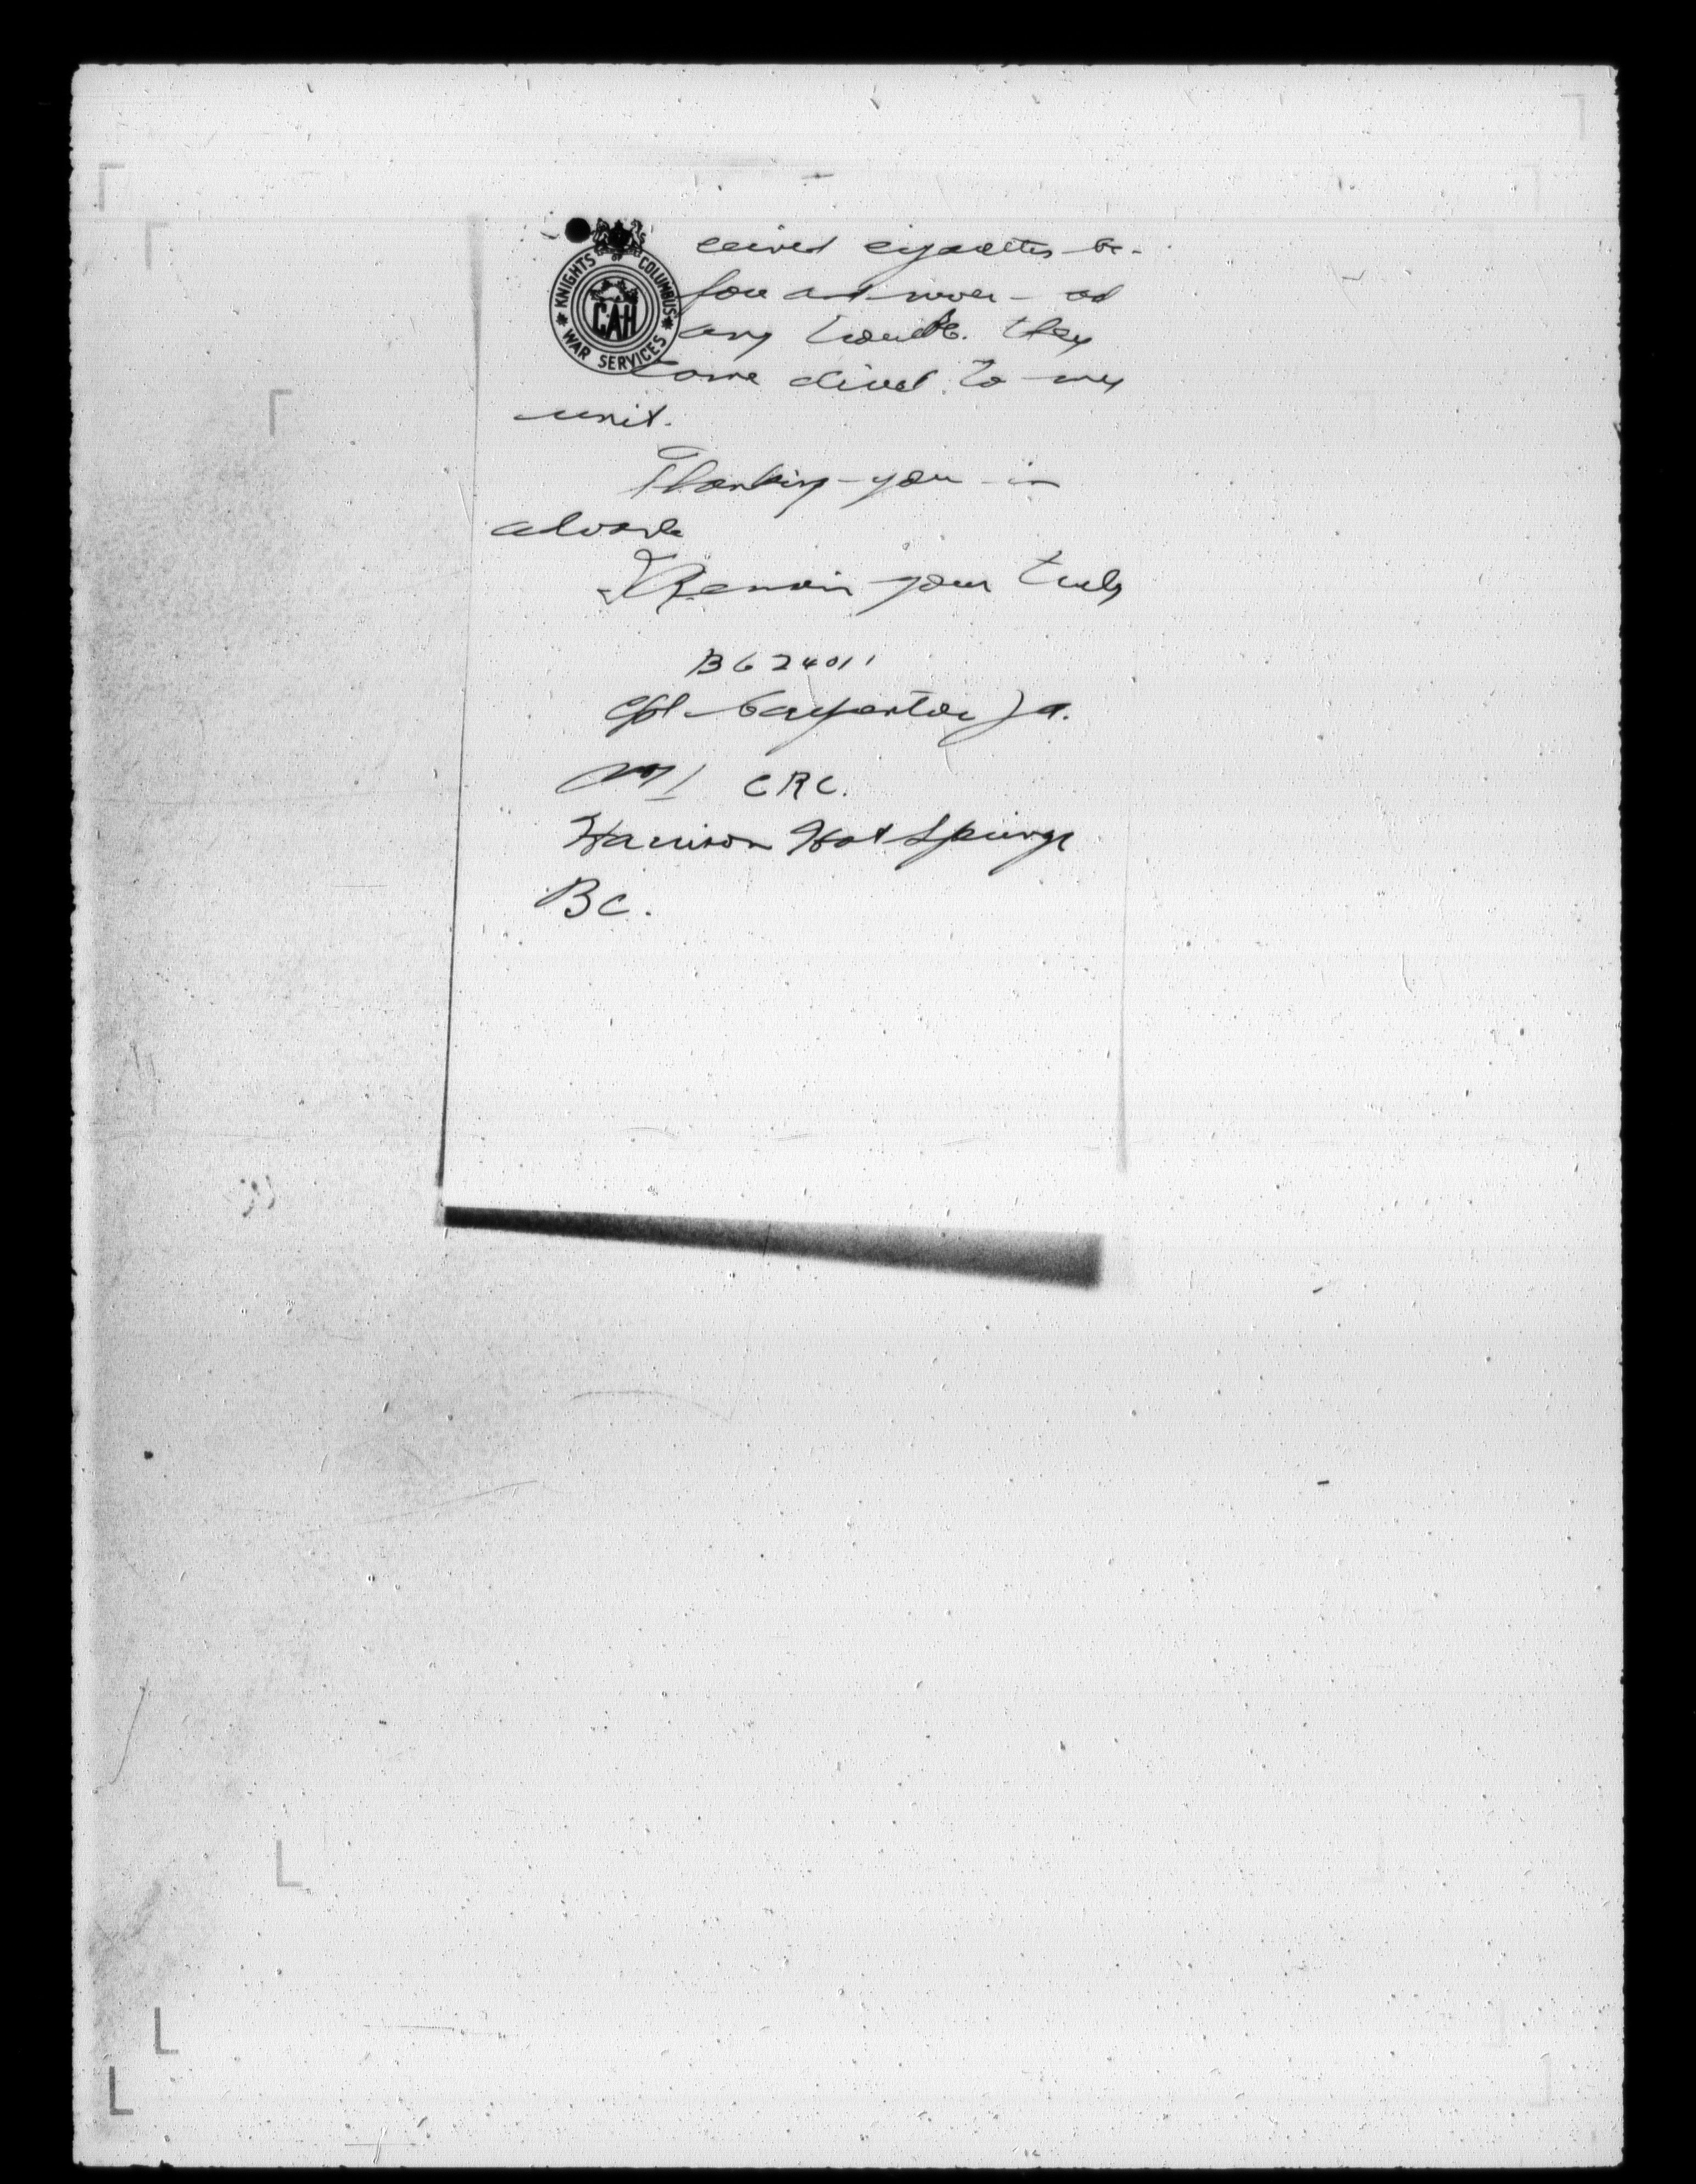 KNIGHTS OF COLUMBUS
CAH
WAR SERVICES
ceived cigarettes be-
fore and never had
any trouble. they
come direct to my
unit.
Thanking you in
advance
I Remain your truly
B624011
Cpl. Carpenter J A.
M1 CRC.
Harrison Hot Springs
BC.